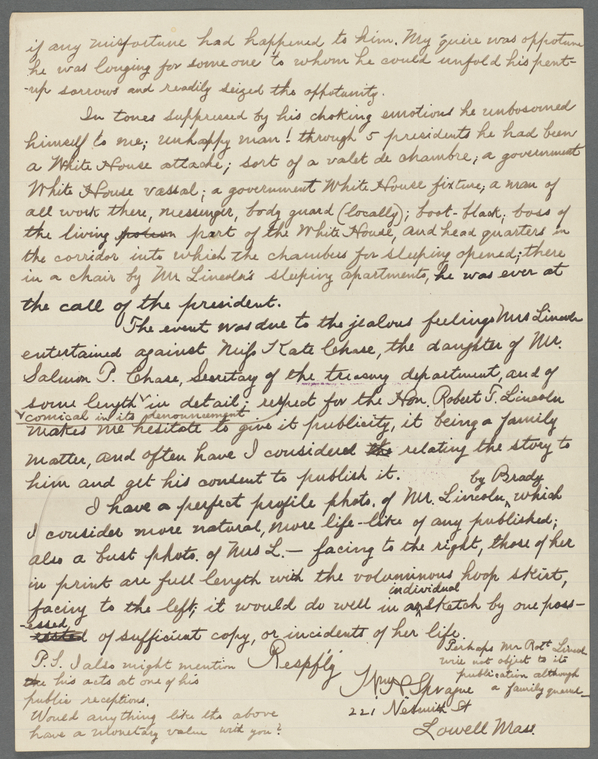 if any misfortune had happened to him. My 'quire was oppotune
he was longing for some one to whom he could unfold his pent-
-up sorrows and readily seized the oppotunity.
In tones suppressed by his choking emotions he unbosomed
himself to me; unhappy man! through 5 presidents he had been
a White House attache; sort of a valet de chambre; a government
White House vassal; a government White House fixture; a man of
all work there, messenger, body guard (locally); boot-black; boss of
the living potion part of the White House, and head quarters in
the corridor into which the chambers for sleeping opened; there
in a chair by Mr. Lincoln's sleeping apartments, he was ever at
the call of the president.
The event was due to the jealous feelings Mrs Lincoln
entertained against Miss Kate Chase, the daughter of Mr.
Salmon P. Chase, Secretary of the treasury department, and of
some length in detail; respect for the Hon. Robert T. Lincoln
comical in its denouncement
makes me hesitate to give it publicity, it being a family
matter, and often have I considered the relating the story to
him and get his consent to publish it.
by Brady
I have a perfect profile photo. of Mr. Lincoln, which
I consider more natural, more life-like of any published;
also a bust photo. of Mrs L. — facing to the right, those of her
in print are full length with the voluminous hoop skirt,
individual
facing to the left, it would do well in a sketch by one poss-
-essed of sufficient copy, or incidents of her life.
Respf'y
Wm H Sprague
221 Nesmith St
Lowell Mass.
P.S. I also might mention
the his acts at one of his
public receptions.
Would anything like the above
have a monetary value with you?
Perhaps Mr Robt Lincoln
will not object to its
publication although
a family